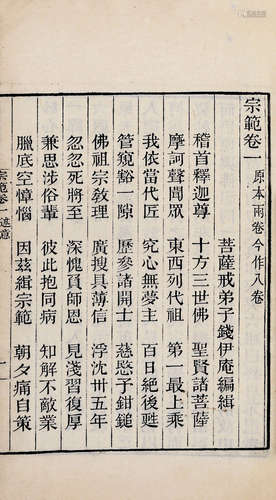 宗範卷一 原本兩卷今作八卷
菩薩戒弟子錢伊庵編緝
稽首釋迦尊 十方三世佛 聖賢諸菩薩
摩訶聲聞眾 東西列代祖 第一最上乘
我依當代匠 究心無夢主 百日絕後甦
管窺豁一隙 歷參諸開士 慈愍子鉗鎚
佛祖宗敎理 廣搜具薄信 浮沈卅五年
忽忽死將至 深愧負師恩 見淺習復厚
兼思涉俗輩 彼此抱同病 知解不敵業
臘底空慞惱 因茲緝宗範 朝夕痛自策
宗範卷一 述意 一